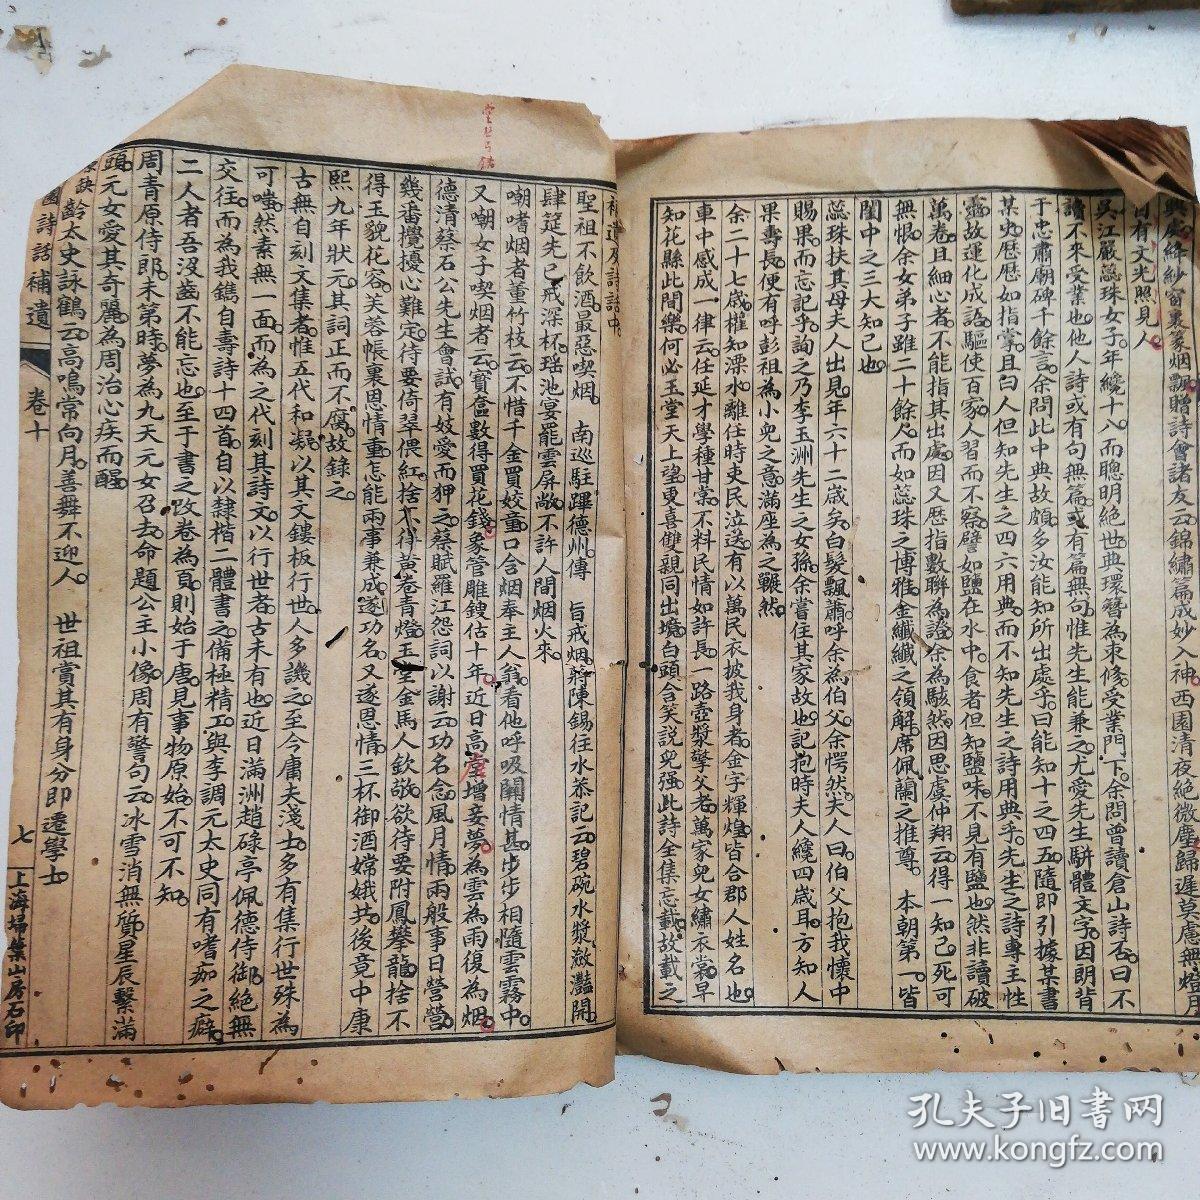 興處絳紗窗裏篆烟飄贈詩會諸友云錦繡篇成妙入神西園清夜絕微塵歸遲莫慮無燈月
自有文光照見人
吳江嚴蕊珠女子年纔十八而聰明絕世典環簪為束修受業門下余問曾讀倉山詩否曰不
讀不來受業也他人詩或有句無篇或有篇無句惟先生能兼之尤愛先生駢體文字因朗背
于忠肅廟碑千餘言余問此中典故頗多汝能知所出處乎曰能知十之四五隨即引據某書
某史歷歷如指掌且曰人但知先生之四六用典而不知先生之詩用典乎先生之詩專主性
靈故運化成語驅使百家人習而不察譬如鹽在水中食者但知鹽味不見有鹽也然非讀破
萬卷且細心者不能指其出處因又歷指數聯為證余為駭然因思虞仲翔云得一知己死可
無恨余女弟子雖二十餘人而如蕊珠之博雅金纖纖之領解席佩蘭之推尊　本朝第一皆
閨中之三大知己也
蕊珠扶其母夫人出見年六十二歲矣白髮飄蕭呼余為伯父余愕然夫人曰伯父抱我懷中
賜果而忘記乎詢之乃李玉洲先生之女孫余嘗住其家故也記抱時夫人纔四歲耳方知人
果壽長便有呼彭祖為小兒之意滿座為之囅然
余二十七歲權知溧水離任時吏民泣送有以萬民衣披我身者金字輝煌皆合郡人姓名也
車中感成一律云任延才學種甘棠不料民情如許長一路壺漿擎父老萬家兒女繡衣裳早
知花縣此間樂何必玉堂天上望更喜雙親同出境白頭含笑說兒強此詩全集忘載故載之
補遺及詩話中
聖祖不飲酒最惡喫烟　南巡駐蹕德州傳　旨戒烟蔣陳錫往水恭記云碧碗水漿澰灩開
肆筵先已戒深杯瑤池宴罷雲屏敞不許人間烟火來
嘲嗜烟者董竹枝云不惜千金買姣童口含烟奉主人翁看他呼吸關情甚步步相隨雲霧中
又嘲女子喫烟者云寶奩數得買花錢象管雕鎪估十年近日高堂增妾夢為雲為雨復為烟
德清蔡石公先生會試有妓愛而狎之蔡賦羅江怨詞以謝云功名念風月情兩般事日營營
幾番攪擾心難定待要倚翠偎紅捨不得黃卷青燈玉堂金馬人欽敬欲待要附鳳攀龍捨不
得玉貌花容芙蓉帳裏恩情重怎能兩事兼成遂功名又遂恩情三杯御酒嫦娥共後竟中康
熙九年狀元其詞正而不腐故錄之
古無自刻文集者惟五代和凝以其文鏤板行世人多譏之至今庸夫淺士多有集行世殊為
可嗤然素無一面而為之代刻其詩文以行世者古未有也近日滿洲趙碌亭佩德侍御絕無
交往而為我鐫自壽詩十四首自以隸楷二體書之備極精工與李調元太史同有嗜痂之癖
二人者吾沒齒不能忘也至于書之改卷為頁則始于唐見事物原始不可不知
周青原侍郎未第時夢為九天元女召去命題公主小像周有警句云冰雪消無質星辰繫滿
頭元女愛其奇麗為周治心疾而醒
齡太史詠鶴云高鳴常向月善舞不迎人　世祖賞其有身分即遷學士
園詩話補遺
卷十
七
上海掃葉山房石印
孔夫子旧书网
www.kongfz.com